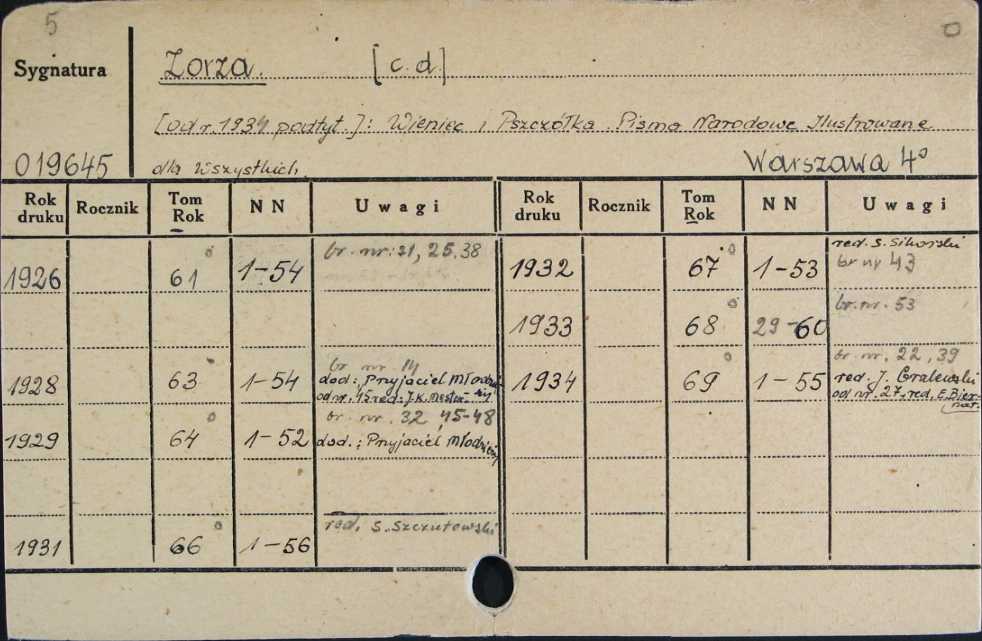 5
Sygnatura
Zorza. [c.d.]
[od r. 1934 podtyt.]: Wieniec i Pszczółka. Pismo Narodowe Ilustrowane
019645 dla wszystkich. Warszawa 4°
Rok druku Rocznik Tom Rok NN Uwagi Rok druku Rocznik Tom Rok NN Uwagi
1926 61 1-54 br. nr: 21, 25. 38
1928 63 1-54 br nr 14
dod.: Przyjaciel Młodzieży
od nr. 15 red: J.K.
1929 64 1-52 br. nr. 32, 45-48
dod.: Przyjaciel Młodzieży
1931 66 1-56 red. S. Szczutowski
1932 67 1-53 red. S. Sikorski
br nr 43
1933 68 29-60 br. nr. 53
1934 69 1-55 br. nr. 22, 39
red. J. Gralewski
od nr. 27. red. E. Bier-
nat.